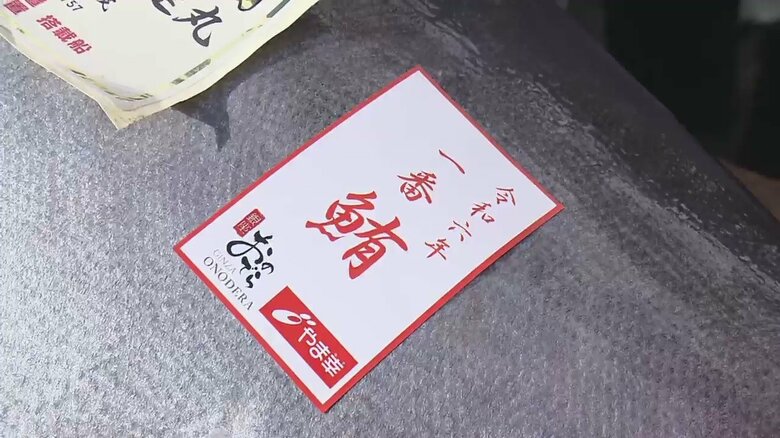 丸
搭載船
57
令和六年
一番
鮪
銀座
おのでら
GINZA
ONODERA
やま幸